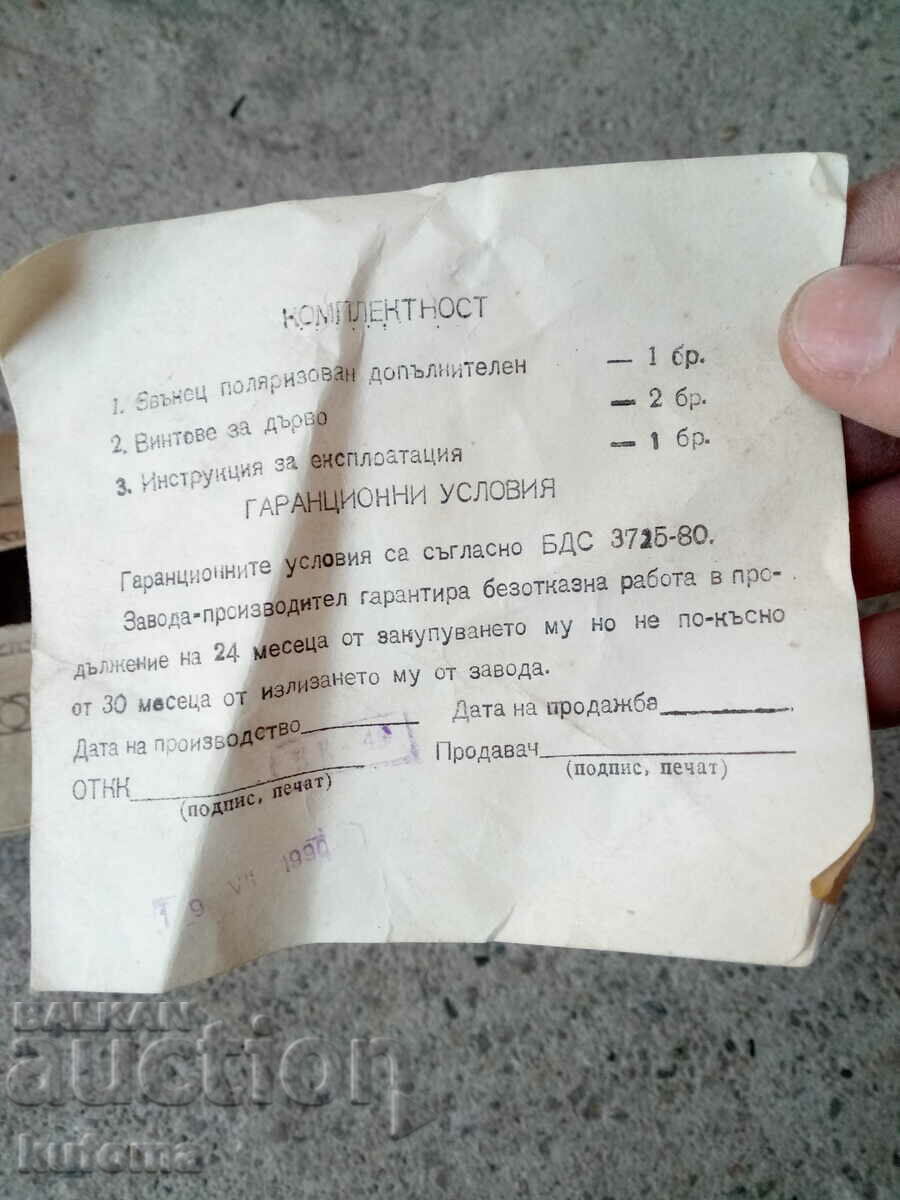 КОМПЛЕКТНОСТ
1. Звънец поляризован допълнителен — 1 бр.
2. Винтове за дърво — 2 бр.
3. Инструкция за експлоатация — 1 бр.
ГАРАНЦИОННИ УСЛОВИЯ
Гаранционните условия са съгласно БДС 3725-80.
Завода-производител гарантира безотказна работа в про-
дължение на 24 месеца от закупуването му но не по-късно
от 30 месеца от излизането му от завода.
Дата на производство Дата на продажба
ОТКК Продавач
(подпис, печат) (подпис, печат)
19 VII 1990
BALKAN
auction
kufoma